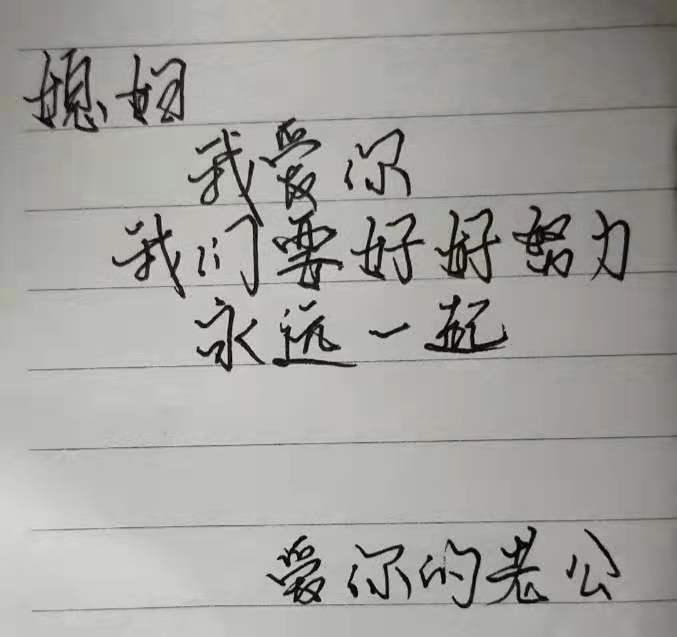 媳妇
我爱你
我们要好好努力
永远一起
爱你的老公